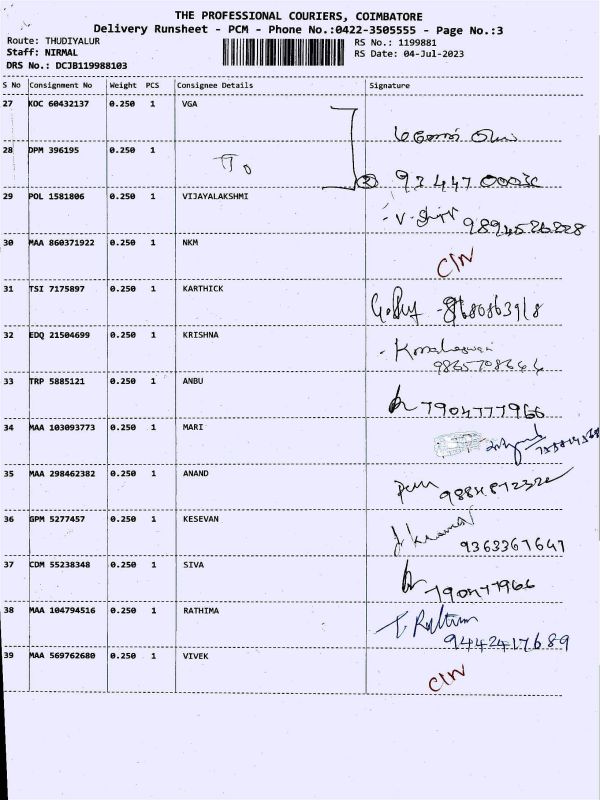 THE PROFESSIONAL COURIERS, COIMBATORE
Delivery Runsheet - PCM - Phone No.:0422-3505555 - Page No.:3
Route: THUDIYALUR
RS No.: 1199881
Staff: NIRMAL
RS Date: 04-Jul-2023
DRS No.: DCJB119988103
S No Consignment No Weight PCS Consignee Details Signature
27 KOC 60432137 0.250 1 VGA
28 DPM 396195 0.250 1
29 POL 1581806 0.250 1 VIJAYALAKSHMI 9894526228
30 MAA 860371922 0.250 1 NKM C/N
31 TSI 7175897 0.250 1 KARTHICK
32 EDQ 21504699 0.250 1 KRISHNA
33 TRP 5885121 0.250 1 ANBU 7904777966
34 MAA 103093773 0.250 1 MARI
35 MAA 298462382 0.250 1 ANAND
36 GPM 5277457 0.250 1 KESEVAN 9363367647
37 CDM 55238348 0.250 1 SIVA
38 MAA 104794516 0.250 1 RATHIMA 9442417689
39 MAA 569762680 0.250 1 VIVEK C/N